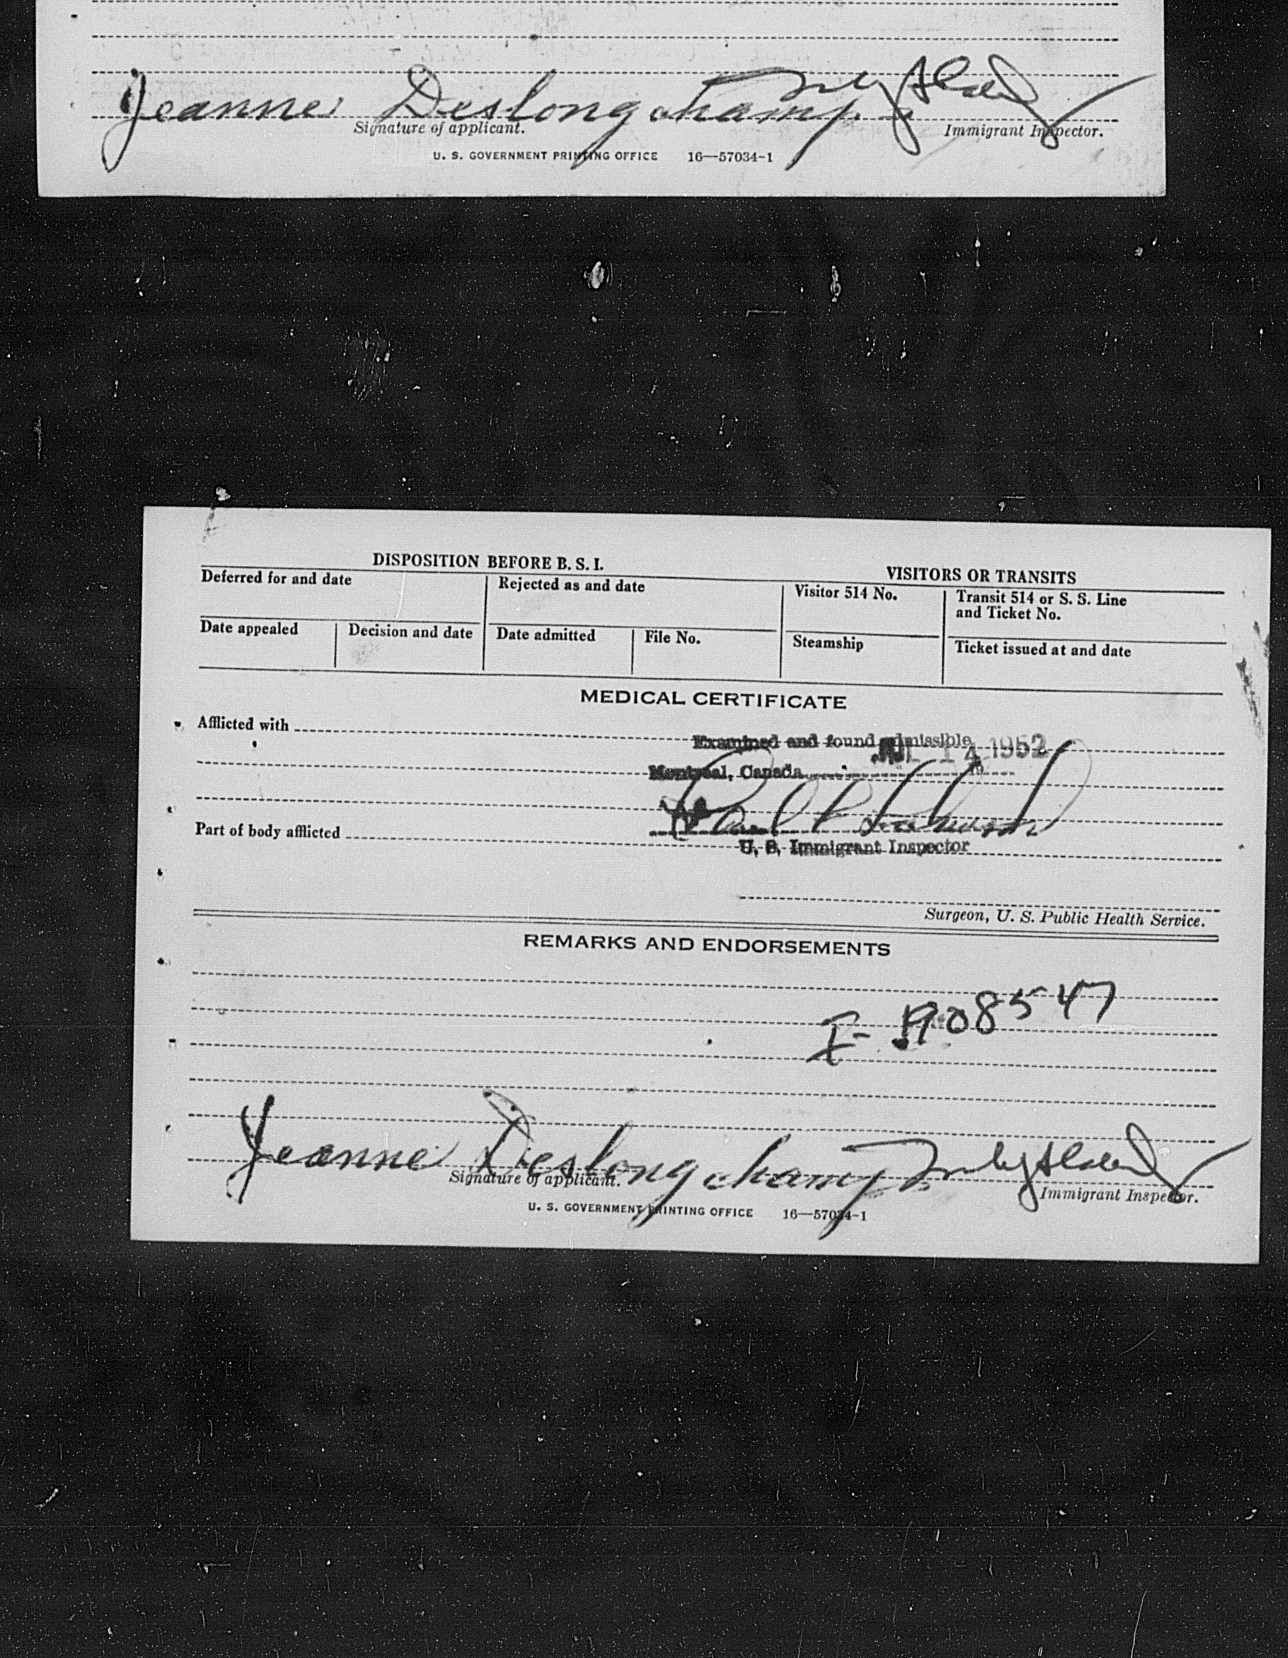 Jeanne Deslongchamp
Signature of applicant. Immigrant Inspector.
U. S. GOVERNMENT PRINTING OFFICE 16—57034-1
DISPOSITION BEFORE B. S. I. VISITORS OR TRANSITS
Deferred for and date Rejected as and date Visitor 514 No. Transit 514 or S. S. Line
and Ticket No.
Date appealed Decision and date Date admitted File No. Steamship Ticket issued at and date
MEDICAL CERTIFICATE
Afflicted with
Examined and found admissible
14 1952
Montreal, Canada 19
Part of body afflicted
U. S. Immigrant Inspector
Surgeon, U. S. Public Health Service.
REMARKS AND ENDORSEMENTS
Jeanne Deslongchamp
Signature of applicant. Immigrant Inspector.
U. S. GOVERNMENT PRINTING OFFICE 16—57034-1